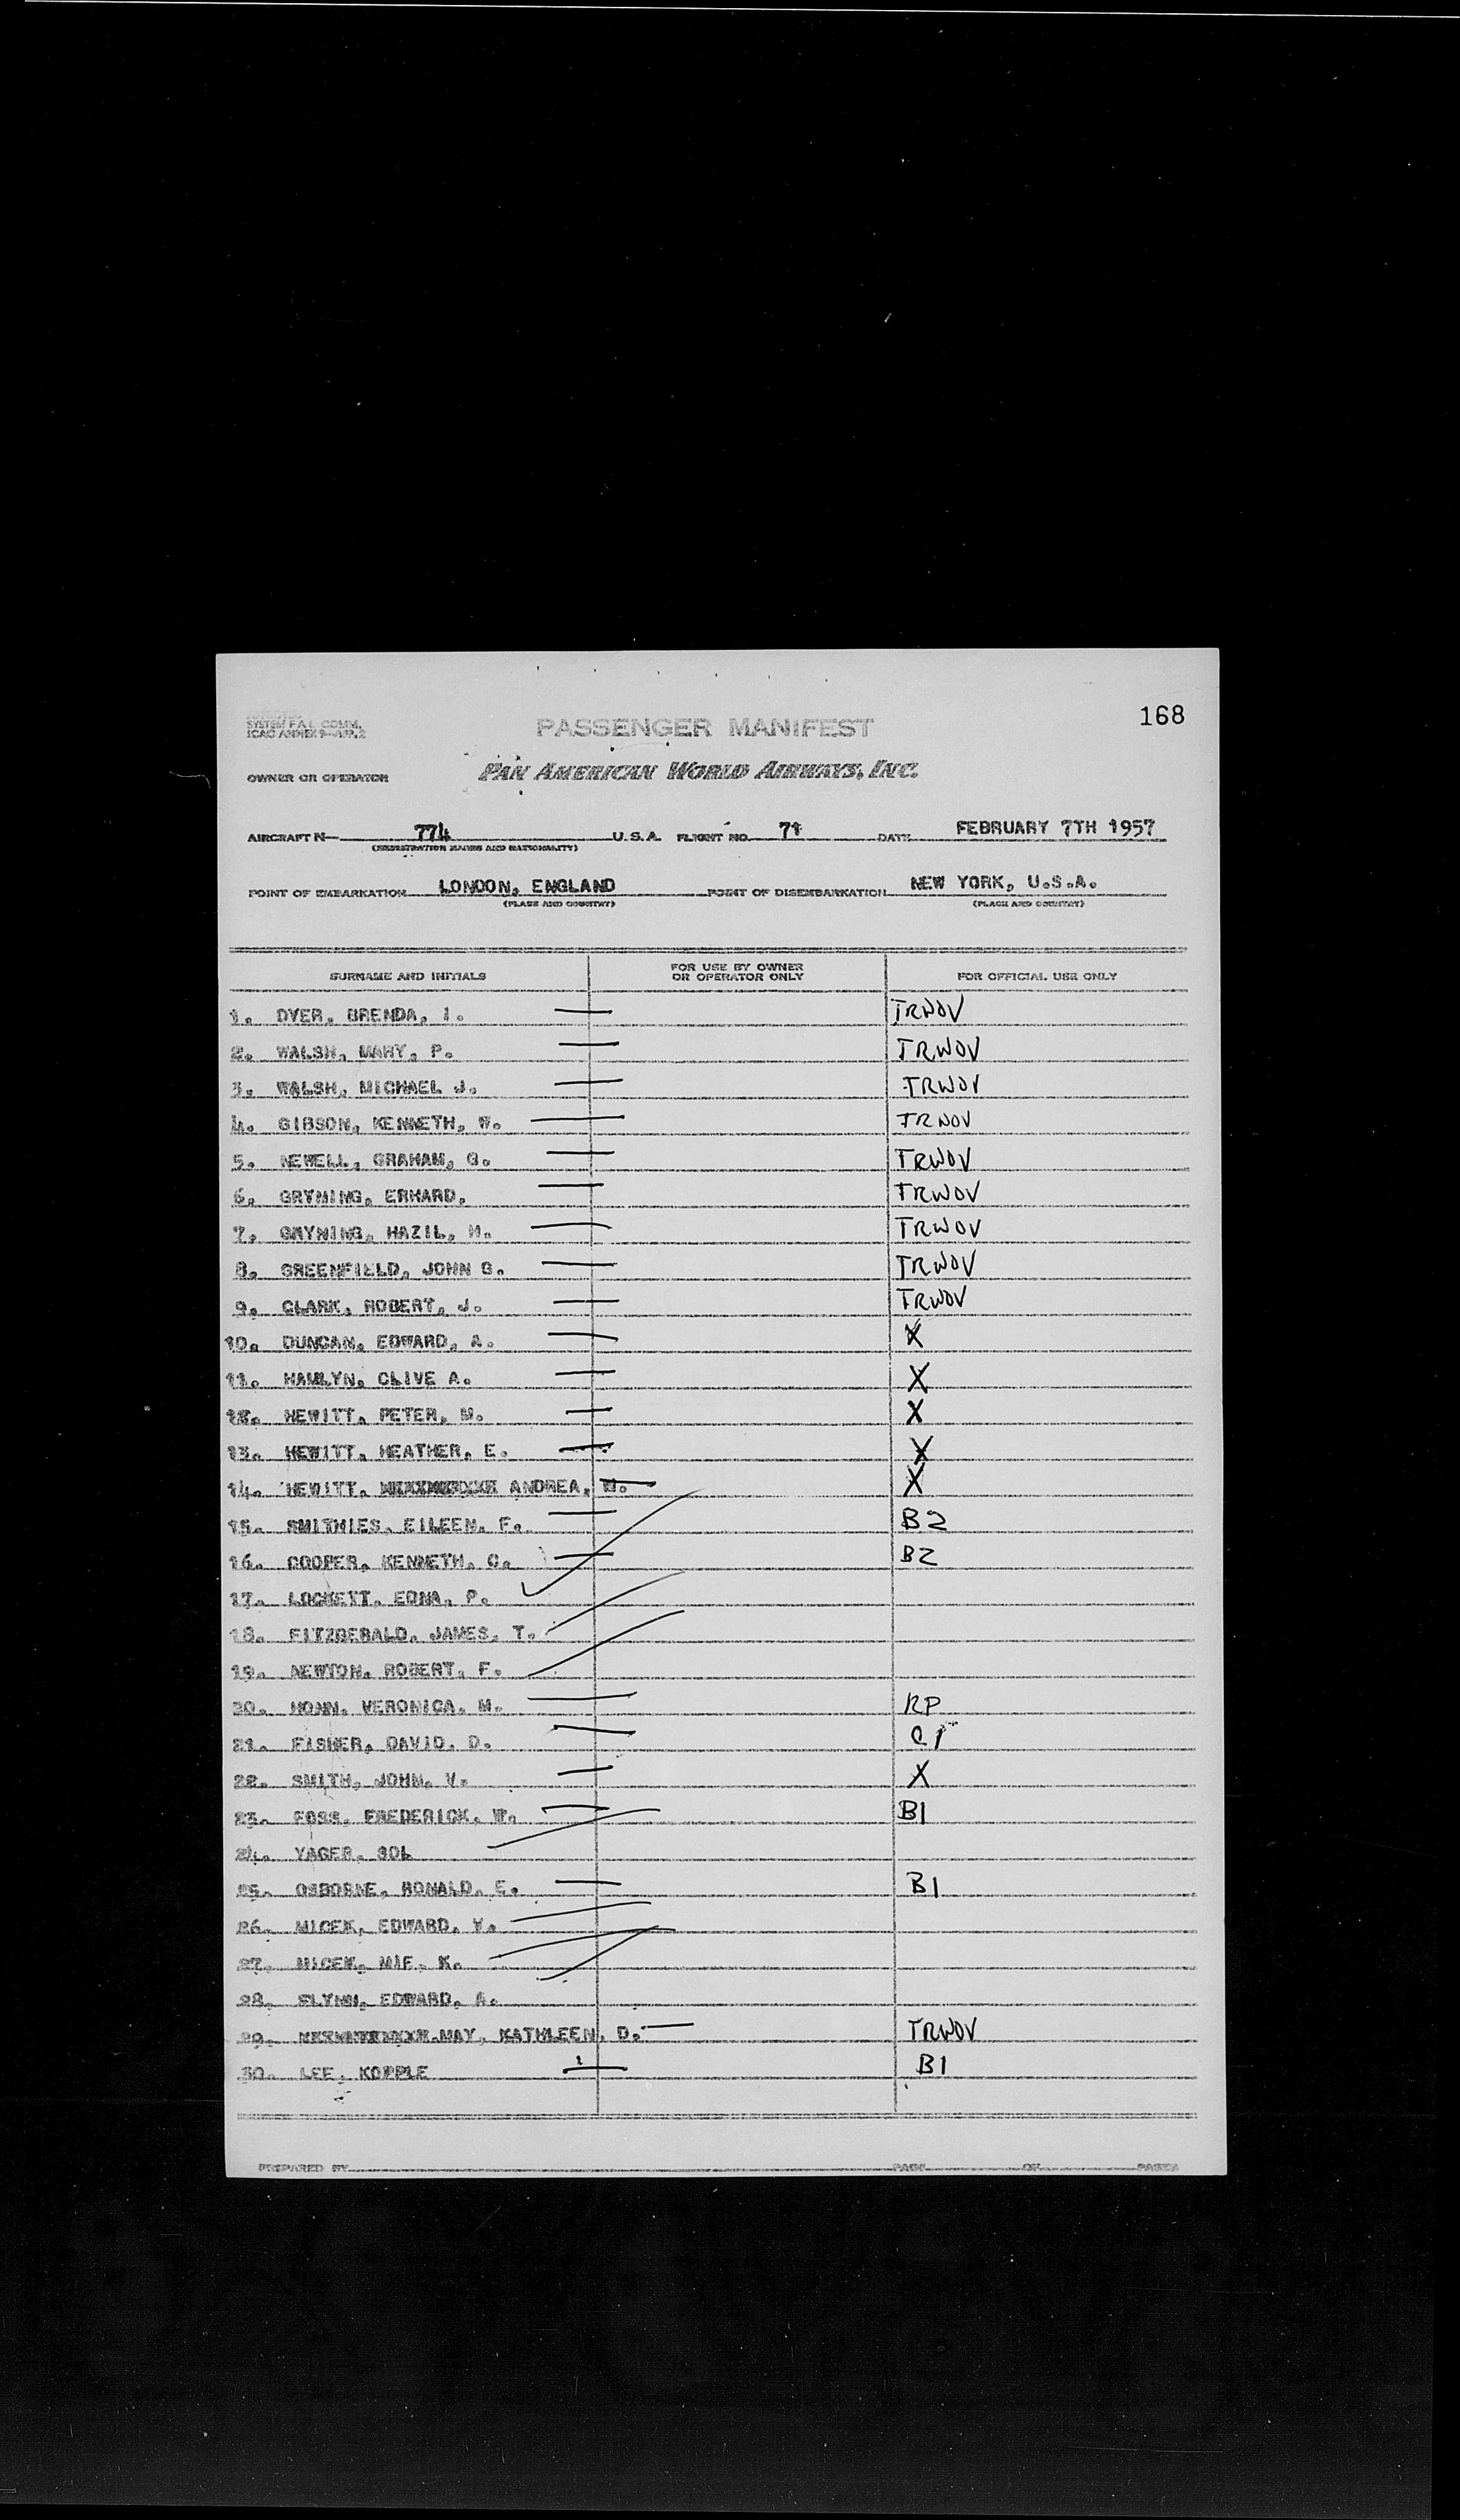 SYSTEM F.A.L. COMM.
ICAO ANNEX 9—APP. 2
PASSENGER MANIFEST
168
OWNER OR OPERATOR
PAN AMERICAN WORLD AIRWAYS, INC.
AIRCRAFT N— 774 U.S.A. FLIGHT NO. 71 DATE FEBRUARY 7TH 1957
(REGISTRATION MARKS AND NATIONALITY)
POINT OF EMBARKATION LONDON, ENGLAND POINT OF DISEMBARKATION NEW YORK, U.S.A.
(PLACE AND COUNTRY) (PLACE AND COUNTRY)
SURNAME AND INITIALS FOR USE BY OWNER OR OPERATOR ONLY FOR OFFICIAL USE ONLY
1. DYER, BRENDA, I. — TRWOV
2. WALSH, MARY, P. — TRWOV
3. WALSH, MICHAEL J. — TRWOV
4. GIBSON, KENNETH, W. — TRWOV
5. NEWELL, GRAHAM, G. — TRWOV
6. GRYNING, ERHARD, — TRWOV
7. GRYNING, HAZIL, M. — TRWOV
8. GREENFIELD, JOHN G. — TRWOV
9. CLARK, ROBERT, J. — TRWOV
10. DUNCAN, EDWARD, A. — X
11. HAMLYN, CLIVE A. — X
12. HEWITT, PETER, M. — X
13. HEWITT, HEATHER, E. — X
14. HEWITT, ANDREA, W. — X
15. SMITHIES, EILEEN, F. — B2
16. COOPER, KENNETH, C. — B2
17. LOCKETT, EDNA, P.
18. FITZGERALD, JAMES, T.
19. NEWTON, ROBERT, F.
20. VERONICA, M. — RP
21. FISHER, DAVID, D. — C1
22. SMITH, JOHN, V. — X
23. FOSS, FREDERICK, W. — B1
24. YAGER, SOL
25. OSBORNE, RONALD, E. — B1
26. MICEK, EDWARD, V.
27. MICEK, MIE, K.
28. EDWARD, A.
29. MAY, KATHLEEN, D. — TRWOV
30. LEE, KOPPLE — B1
PREPARED BY PAGE OF PAGES